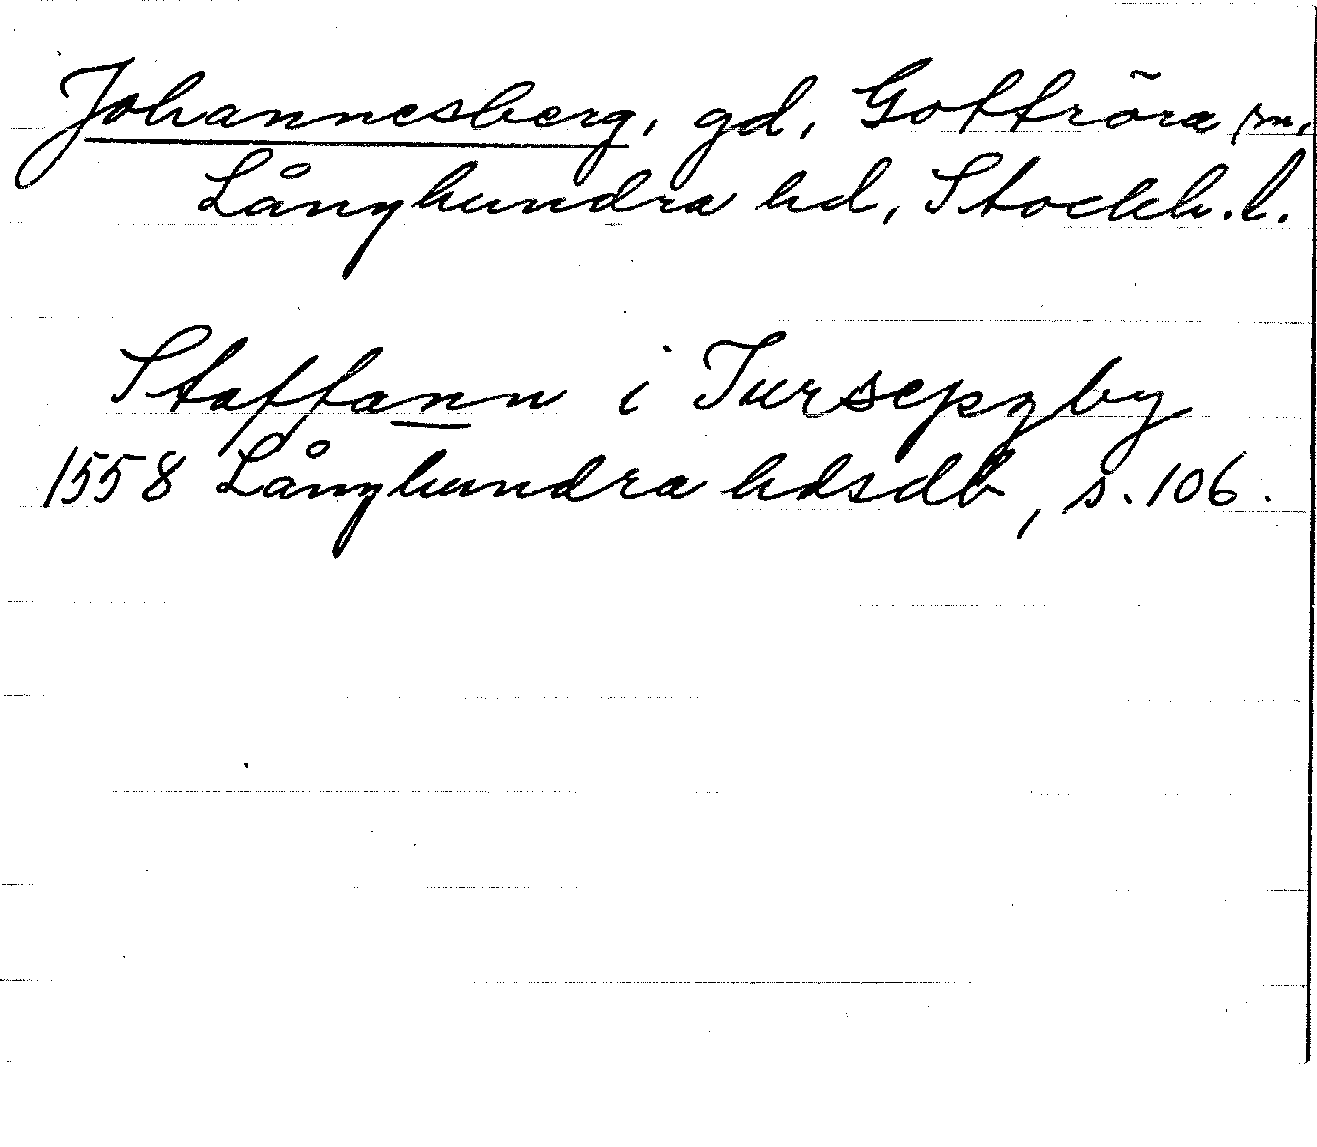 Johannesberg, gd, Gottröra sn,
Långhundra hd, Stockh. l.
Staffann i Tursepzby
1558 Långhundra hdsdb, s. 106.